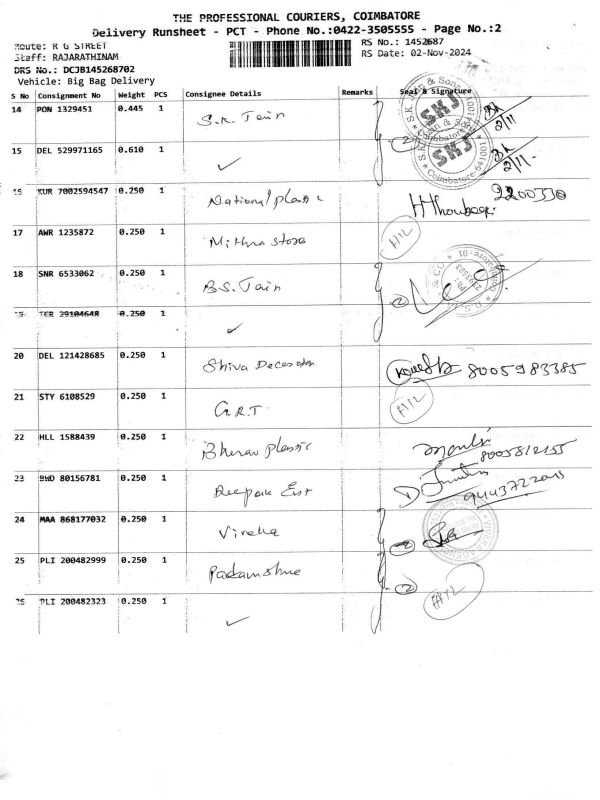 THE PROFESSIONAL COURIERS, COIMBATORE
Delivery Runsheet - PCT - Phone No.:0422-3505555 - Page No.:2
Route: R G STREET
RS No.: 1452687
Staff: RAJARATHINAM
RS Date: 02-Nov-2024
DRS No.: DCJB145268702
Vehicle: Big Bag Delivery
S No Consignment No Weight PCS Consignee Details Remarks Seal & Signature
14 PON 1329451 0.445 1 S.K. Jain 2/11
15 DEL 529971165 0.610 1 ✓ 2/11
SKJ
SKJ
Coimbatore-641001
16 KUR 7002594547 0.250 1 National plastic 2200330
17 AWR 1235872 0.250 1 Mithra stores H/L
18 SNR 6533062 0.250 1 B.S. Jain 2
19 TER 29104648 0.250 1 ✓
20 DEL 121428685 0.250 1 Shiva 8005983385
21 STY 6108529 0.250 1 G.R.T. H/L
22 HLL 1588439 0.250 1 plastic
23 BWD 80156781 0.250 1 Deepak Ent
24 MAA 868177032 0.250 1 2
25 PLI 200482999 0.250 1 2
26 PLI 200482323 0.250 1 ✓